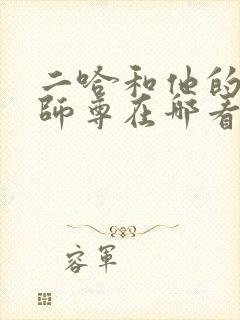 二哈和他的
師尊在那看
容軍